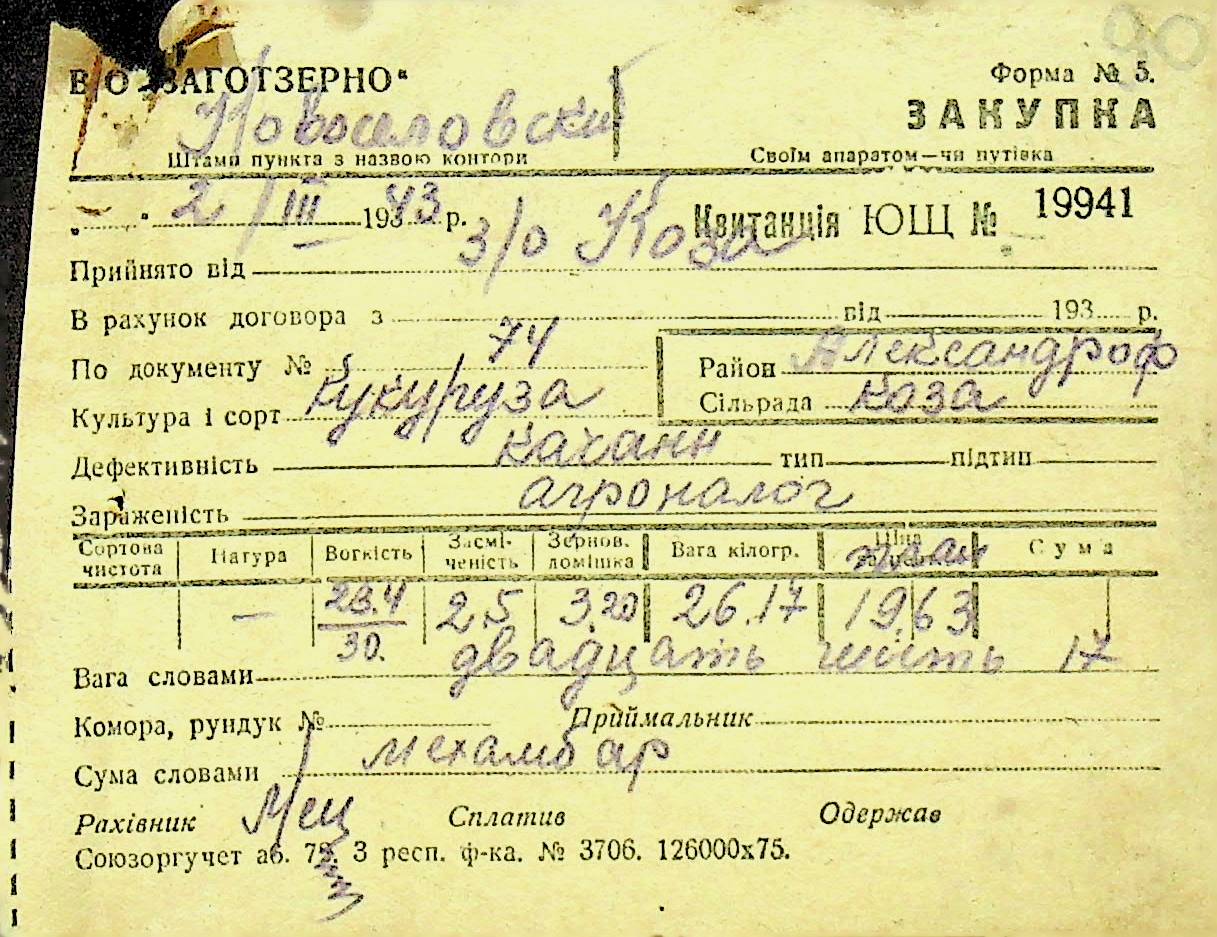 90
В/О „ЗАГОТЗЕРНО“ Форма № 5.
Новоселовский ЗАКУПКА
Штамп пункта з назвою контори Своїм апаратом—чи путівка
„ “ 2/III 193 43 р. Квитанція ЮЩ № 19941
Прийнято від з/о Коза
В рахунок договора з від 193 р.
По документу № 74 Район Александроф
Культура і сорт Кукуруза Сільрада Коза
Дефективність качани тип підтип
Зараженість агроналог
Сортова чистота Натура Вогкість Засмі-ченість Зернов. домішка Вага кілогр. Ціна Сума
— 23.4/30. 2,5 3,20 26.17 19,63
Вага словами двадцать шисть 17
Комора, рундук № Приймальник
Сума словами мехамбар
Рахівник Сплатив Одержав
Союзоргучет аб. 75. 3 респ. ф-ка. № 3706. 126000х75.